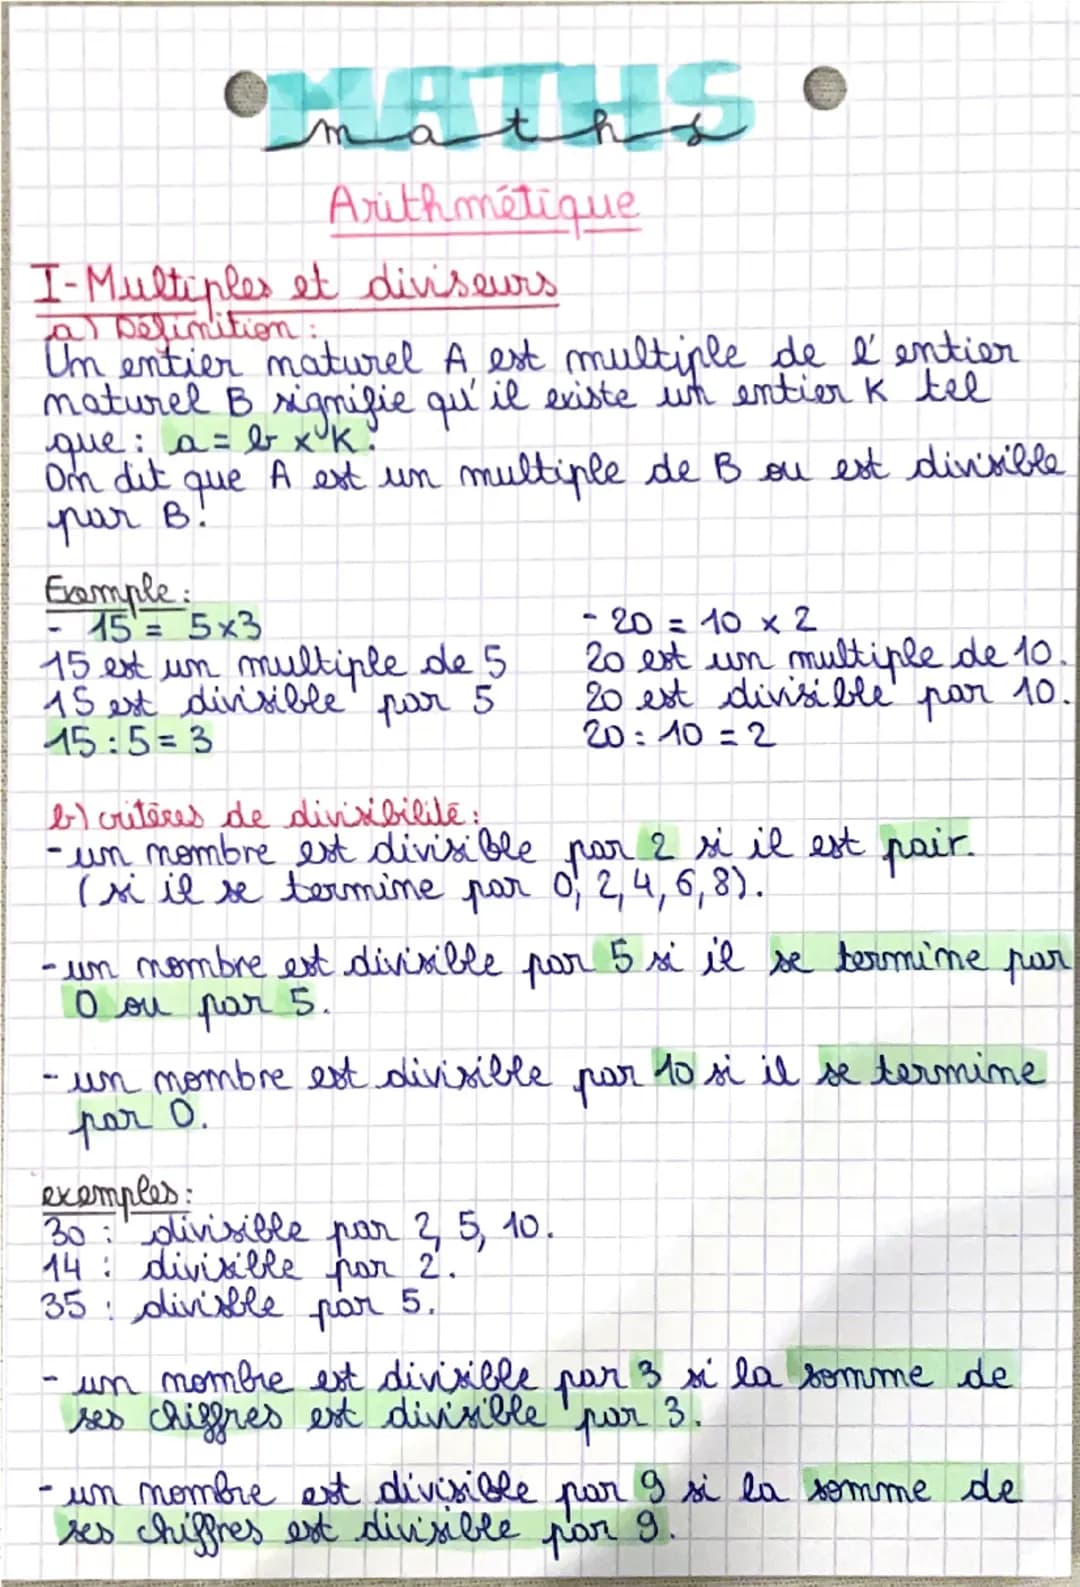 MATHS
maths
Arithmétique
I-Multiples et diviseurs
a) Définition :
Un entier naturel A est multiple de l'entier
naturel B signifie qu'il existe un entier K tel
que : a = b x K.
On dit que A est un multiple de B ou est divisible
par B.
Exemple :
- 15 = 5x3
15 est un multiple de 5
15 est divisible par 5
15 : 5 = 3
- 20 = 10 x 2
20 est un multiple de 10.
20 est divisible par 10.
20 : 10 = 2
b) critères de divisibilité :
- un nombre est divisible par 2 si il est pair.
(si il se termine par 0, 2, 4, 6, 8).
- un nombre est divisible par 5 si il se termine par
0 ou par 5.
- un nombre est divisible par 10 si il se termine
par 0.
exemples :
30 : divisible par 2, 5, 10.
14 : divisible par 2.
35 : divisble par 5.
- un nombre est divisible par 3 si la somme de
ses chiffres est divisible par 3.
- un nombre est divisible par 9 si la somme de
ses chiffres est divisible par 9.